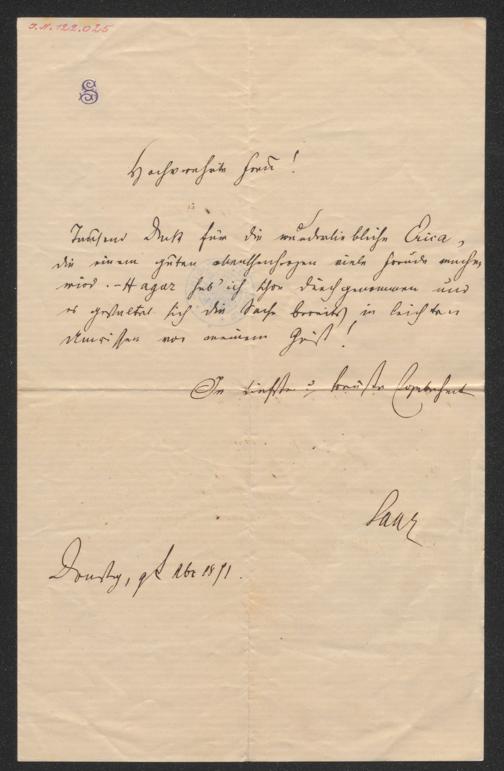 J.N. 122.025
S
Hochverehrte Frau!
Tausend Dank für die wunderliebliche Erica,
die einem guten viele Freude machen
wird. - Hagar hab' ich schon durchgenommen und
es gestaltet sich die Sache bereits in leichten
Umrissen vor meinem Geist!
In tiefster u. treuster Ergebenheit
Saar
Döbling, 9t Abr 1891.